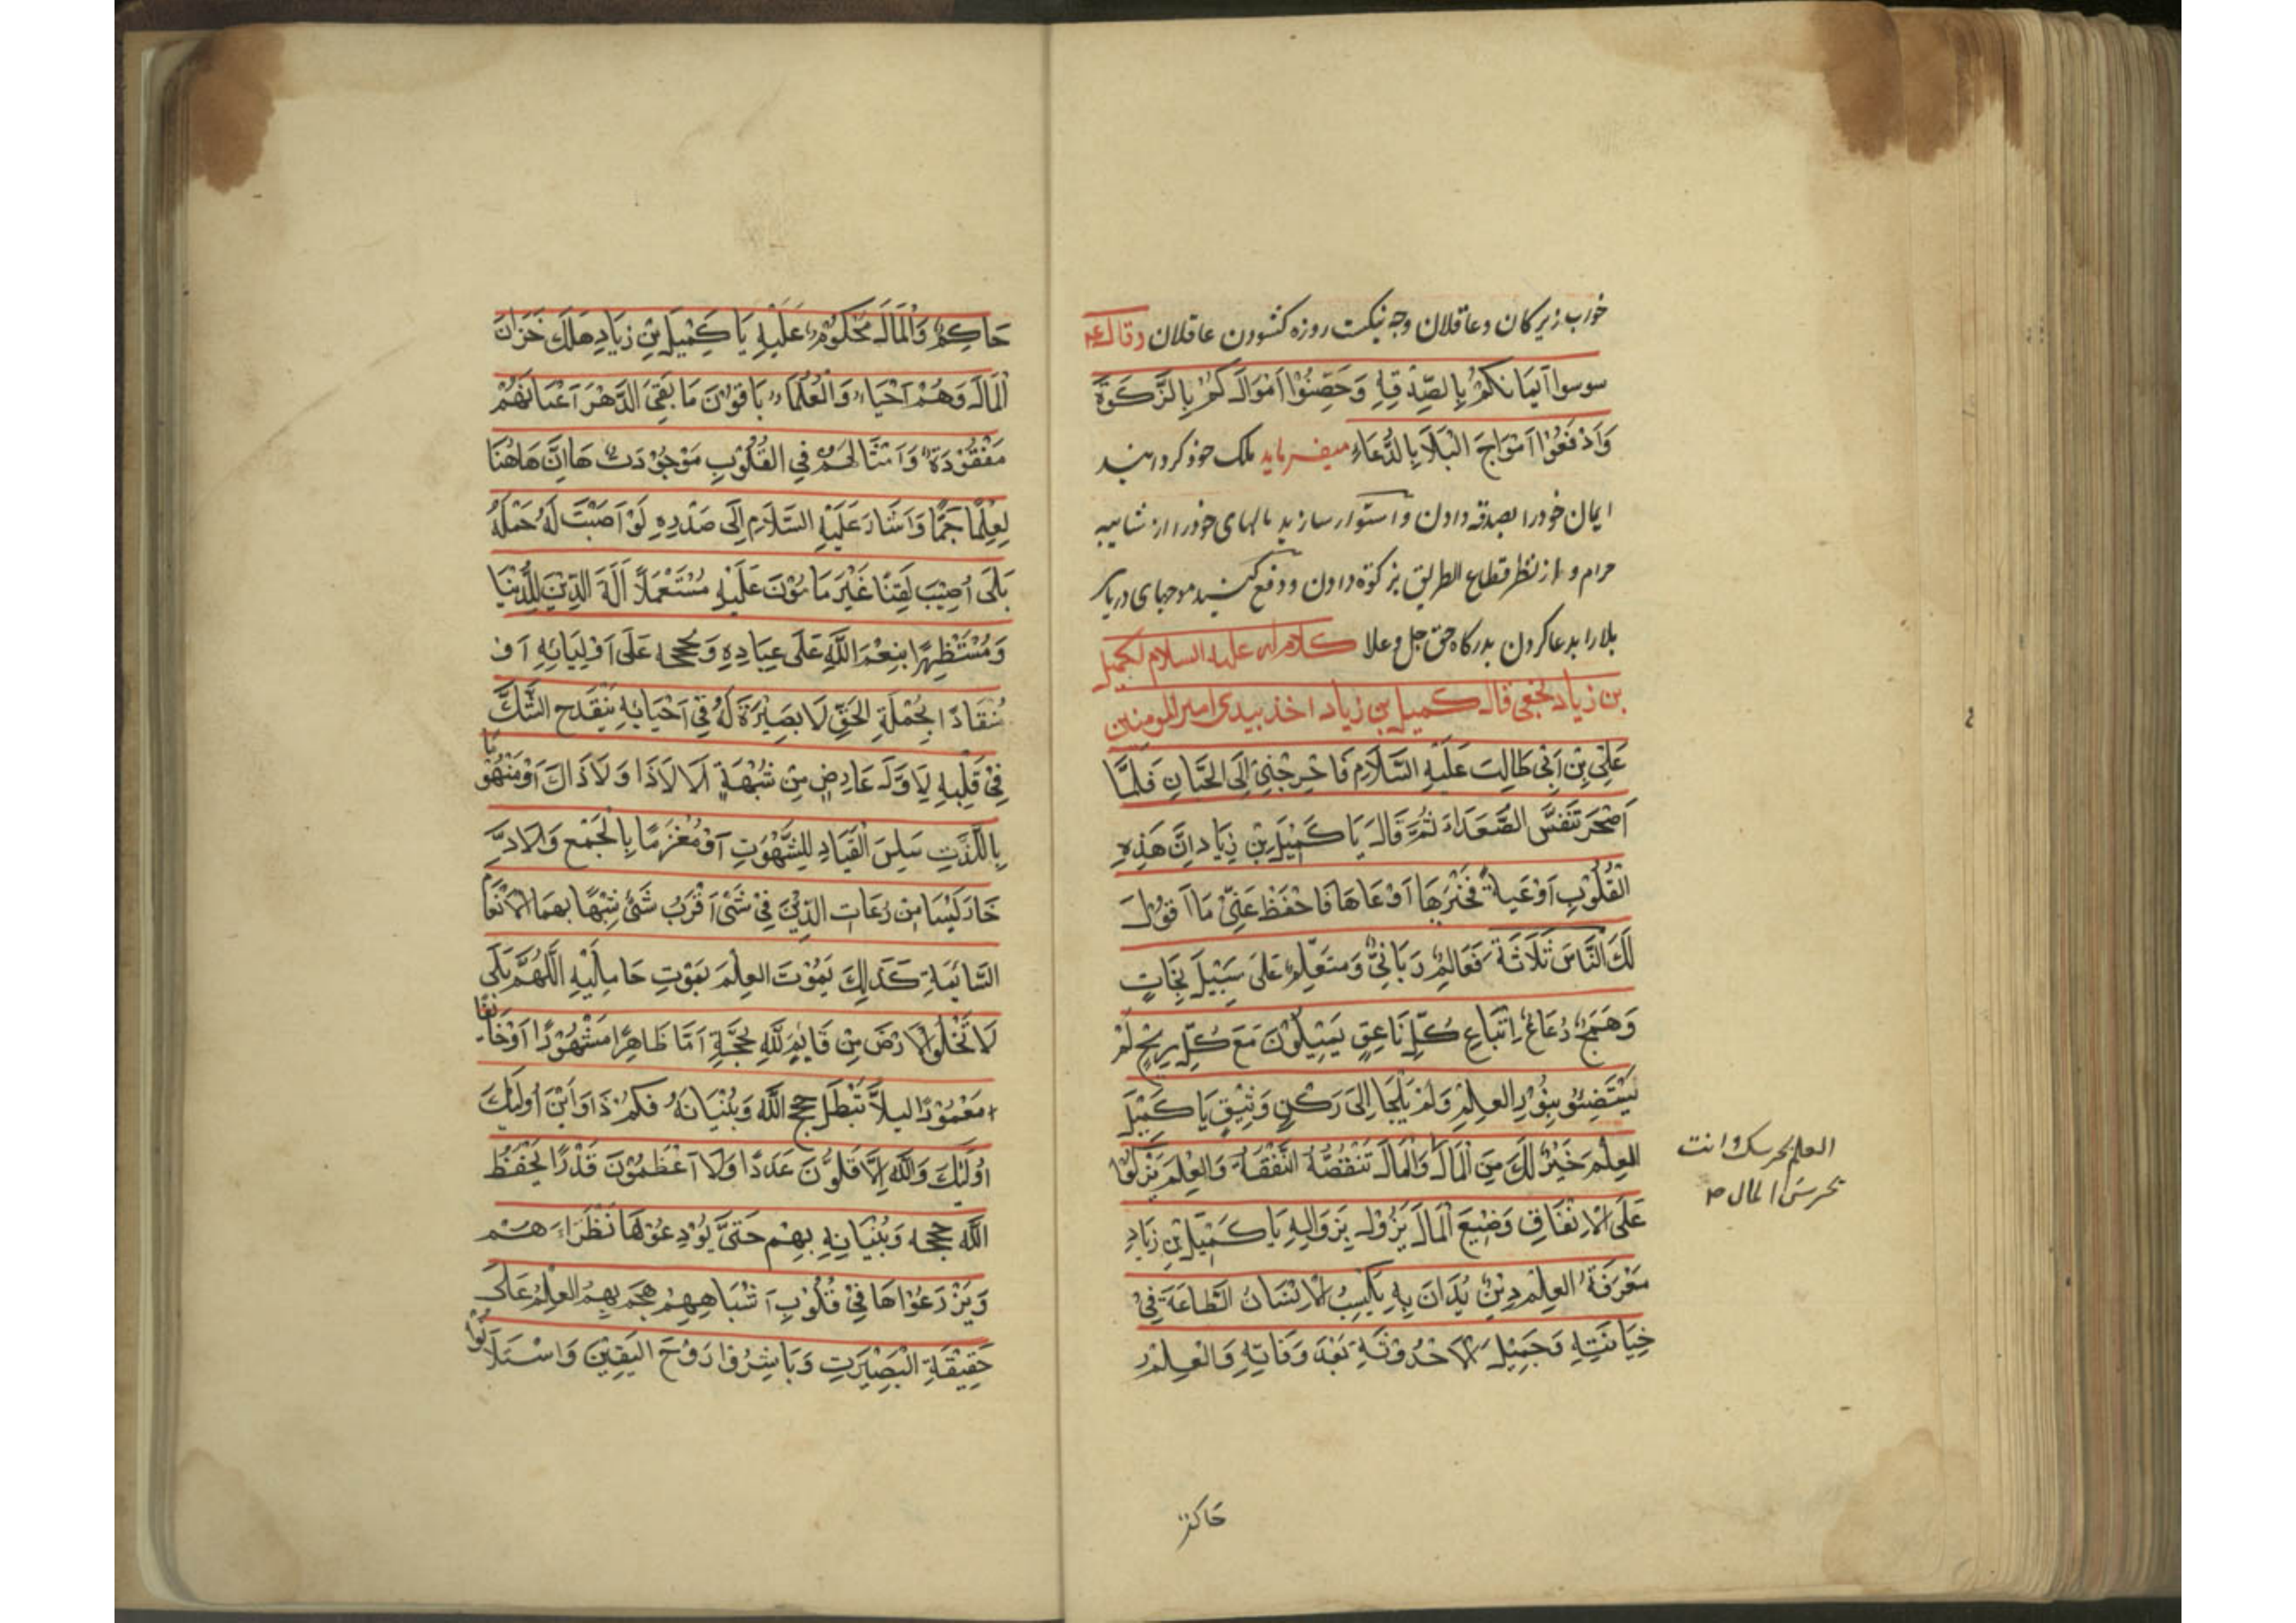 خواب زیرکان و عاقلان وچه نیکست روزه کشودن عاقلان وقال ع
سوسوا ایمانکم بالصدقة وحصنوا اموالکم بالزکوة
وادفعوا امواج البلا بالدعاء میفرماید ملک خود کردانید
ایمان خود را بصدقه دادن و استوار سازید مالهای خود را از شایبه
حرام و از نظر قطاع الطریق بزکوة دادن و دفع کنید موجهای دریای
بلا را بدعا کردن بدرکاه حق جل وعلا کلام له علیه السلام لکمیل
بن زیاد نخعی قال کمیل بن زیاد اخذ بیدی امیر المومنین
عَلِیِ بْنِ اَبِی طَالِبٍ عَلَیْهِ السَّلَامِ فَاخْرِجْنِی اِلَی الجَبَّانِ فَلَمَّا
اَصْحَرَ تَنَفَّسَ الصُّعَدَاءَ ثُمَّ قَالَ یَا کُمَیْلَ بْنِ زِیَادٍ اِنَّ هَذِهِ
الْقُلُوْبِ اَوْعِیَةً فَخَیْرُهَا اَوْعَاهَا فَاحْفَظْ عَنِّیْ مَا اَقُوْلُ
لَكَ النَّاسُ ثَلَاثَةَ فَعَالِمٌ رَبَانِیٌّ وَمتعَلِّمٌ عَلَی سَبِیْلِ نَجَاتٍ
وَهَمَجٌ رُعَاعٌ اِتْبَاعِ کُلِّ نَاعِقٍ یَمِیْلُوْنَ مَعَ کُلِّ رِیْحٍ لَمْ
یَسْتَضِیْئُو بِنُوْرِ العِلْمِ وَلَمْ یَلْجَا اِلَی رَکْنٍ وَثِیْقٍ یَا کُمَیْلَ
العِلْمَ خَیْرٌ لَكَ مِنَ الْمَالَ وَالْمَالَ تَنْقُصُهُ النَّفْقَةُ وَالْعِلْمَ یَزْکُوْا
العلم یحرسك وانت
تحرس المال ص
عَلَی الْاِنْفَاقِ وَصَنِیْعَ الْمَالَ یَزُوْلُ بِزَوَالِهِ یَا کُمَیْلَ بْنِ زِیَادٍ
مَعْرَفَةُ العِلْمِ دِیْنٌ یُدَانَ بِهِ یَکْسِبُ الْاِنْسَانُ الطَّاعَةَ فِیْ
حِیَاتِهِ وَجَمِیْلَ الْاُحْدُوْثَةِ بَعْدَ وَفَاتِهِ وَالْعِلْمُ
حَاکم
حَاکِمٌ وَالْمَالَ مَحْکُوْمٌ عَلَیْهِ یَا کُمَیْلَ بْنِ زِیَادٍ هَلَكَ خَزَّانَ
الْمَالَ وَهُمْ اَحْیَاءٌ وَالْعُلَمَاءُ بَاقُوْنَ مَا بَقِیَ الدَّهْرَ اَعْیَانُهُمْ
مَفْقُوْدَةٌ وَاَمْثَالُهُمْ فِی القُلُوْبِ مَوْجُوْدَتٌ هَا اِنَّ هَاهُنَا
لَعِلْمًا جَمًّا وَاَشَارَ عَلَیْهِ السَّلَامِ اِلَی صَدْرِهِ لَوْ اَصَبْتَ لَهُ حَمَلَةً
بَلَی اُصِیْبَ لَقِنًا غَیْرَ مَامُوْنَ عَلَیْهِ مُسْتَعْمَلًا اٰلَةَ الدِّیْنِ لِلدُّنْیَا
وَمُسْتَظْهِرًا بِنِعْمَ اللّٰهِ عَلَی عِبَادِهِ وَبحججه عَلَی اَوْلِیَائِهِ اَوْ
مُنْقَادًا لِجُمْلَةِ الحَقِّ لَا بَصِیْرَةَ لَهُ فِی اَحْیَائِهِ یَنْقَدِح الشَّكَّ
فِیْ قَلْبِهِ لِاَوَّلَ عَارِضٍ مِنْ شُبْهَةٍ اَلَا لَا ذَا وَلَا ذَاكَ اَوْ مَنْهُوْمًا
بِاللَّذَّتِ سَلِسَ الْقِیَادِ لِلشَّهْوَتِ اَوْ مُغْرَمًا بِالْجَمْعِ وَالِادِّ
خَارَ لَیْسَا مِنْ رُعَاتِ الدِّیْنَ فِیْ شَیْ اَقْرَبُ شَیْ شِبْهًا بِهِمَا الْاَنْعَامُ
السَّائِمَةِ کَذَلِكَ یَمُوْتَ العِلْمَ بِمَوْتِ حَامِلِیْهِ اللّٰهُمَّ بَلَی
لَا تَخْلُوا الْاَرْضَ مِنْ قَایِمٍ لِلّٰهِ بحُجَّةٍ اَمَّا ظَاهِرًا مَشْهُوْرًا اَوْ خَائفًا
مَغْمُوْرًا لیلَّا تَبْطَلَ حجج اللّٰه وَبَیِّنَاتَهُ فکم ذَا وَاَیْنَ اُولَئِكَ
اُولَئِكَ وَاللّٰهِ اَلْاَقَلُّوْنَ عَدَدًا وَالْاَعْظَمُوْنَ قَدْرًا یحْفَظُ
اللّٰه حججه وَبَیِّنَاتِهِ بِهِمْ حَتَّی یُوْدِعُوْهَا نَظَرَاءَ هُمْ
وَیَزْرَعُوْاهَا فِیْ قُلُوْبِ اَشْبَاهِهِمْ هَجَمَ بِهِمُ العِلْمُ عَلَی
حَقِیْقَةِ الْبَصِیْرَتِ وَبَاشِرُوْا رَوْحَ الیَقِیْنِ وَاسْتَلَانُوْا